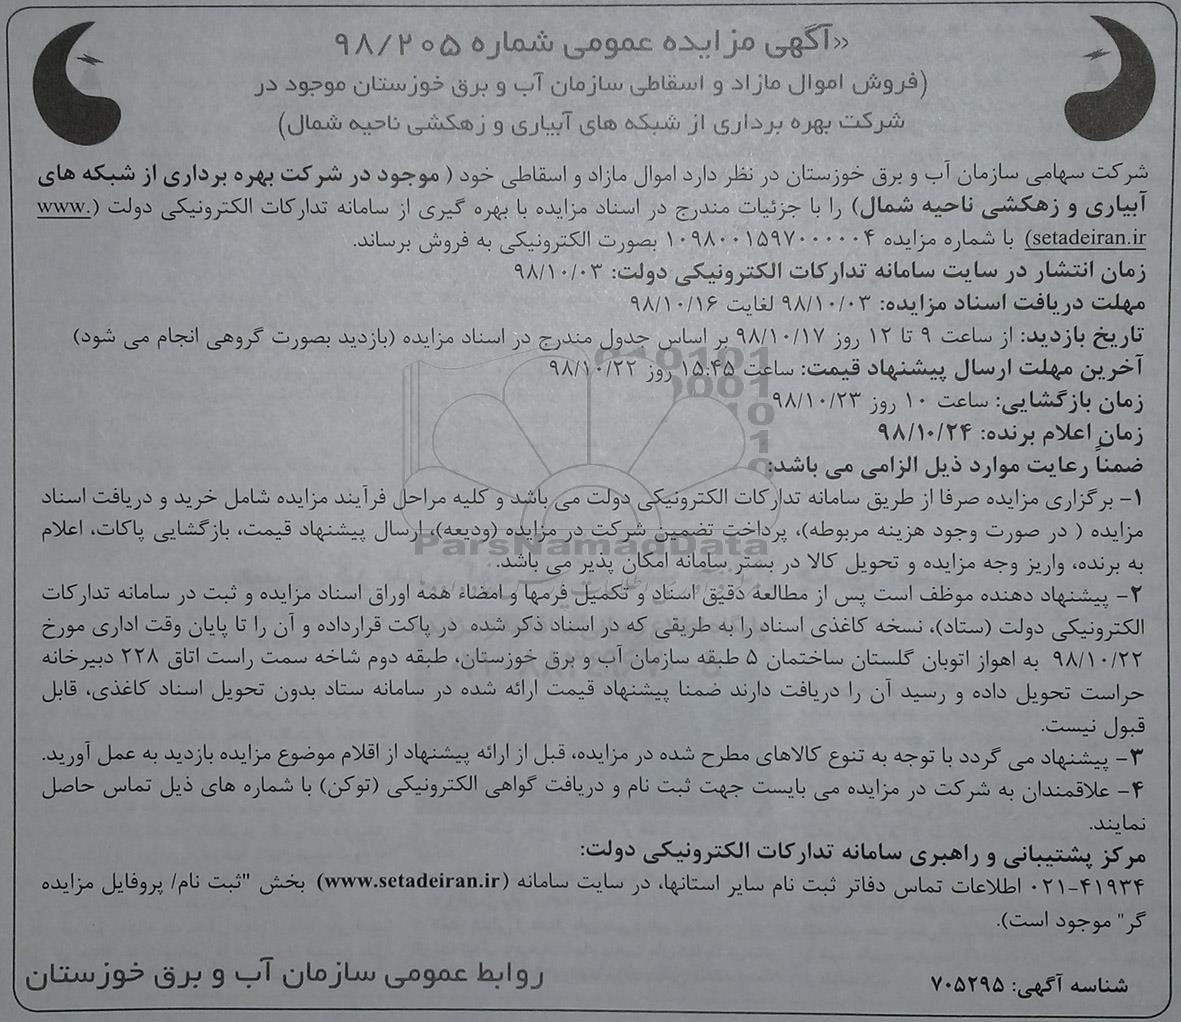 «آگهی مزایده عمومی شماره ۹۸/۲۰۵»
(فروش اموال مازاد و اسقاطی سازمان آب و برق خوزستان موجود در
شرکت بهره برداری از شبکه های آبیاری و زهکشی ناحیه شمال)
شرکت سهامی سازمان آب و برق خوزستان در نظر دارد اموال مازاد و اسقاطی خود ( موجود در شرکت بهره برداری از شبکه های
آبیاری و زهکشی ناحیه شمال) را با جزئیات مندرج در اسناد مزایده با بهره گیری از سامانه تدارکات الکترونیکی دولت (www.
setadeiran.ir) با شماره مزایده ۱۰۹۸۰۰۱۵۹۷۰۰۰۰۰۴ بصورت الکترونیکی به فروش برساند.
زمان انتشار در سایت سامانه تدارکات الکترونیکی دولت: ۹۸/۱۰/۰۳
مهلت دریافت اسناد مزایده: ۹۸/۱۰/۰۳ لغایت ۹۸/۱۰/۱۶
تاریخ بازدید: از ساعت ۹ تا ۱۲ روز ۹۸/۱۰/۱۷ بر اساس جدول مندرج در اسناد مزایده (بازدید بصورت گروهی انجام می شود)
آخرین مهلت ارسال پیشنهاد قیمت: ساعت ۱۵:۴۵ روز ۹۸/۱۰/۲۲
زمان بازگشایی: ساعت ۱۰ روز ۹۸/۱۰/۲۳
زمان اعلام برنده: ۹۸/۱۰/۲۴
ضمناً رعایت موارد ذیل الزامی می باشد:
۱- برگزاری مزایده صرفا از طریق سامانه تدارکات الکترونیکی دولت می باشد و کلیه مراحل فرآیند مزایده شامل خرید و دریافت اسناد
مزایده ( در صورت وجود هزینه مربوطه)، پرداخت تضمین شرکت در مزایده (ودیعه)، ارسال پیشنهاد قیمت، بازگشایی پاکات، اعلام
به برنده، واریز وجه مزایده و تحویل کالا در بستر سامانه امکان پذیر می باشد.
ParsNamadData
۲- پیشنهاد دهنده موظف است پس از مطالعه دقیق اسناد و تکمیل فرمها و امضاء همه اوراق اسناد مزایده و ثبت در سامانه تدارکات
الکترونیکی دولت (ستاد)، نسخه کاغذی اسناد را به طریقی که در اسناد ذکر شده در پاکت قرارداده و آن را تا پایان وقت اداری مورخ
۹۸/۱۰/۲۲ به اهواز اتوبان گلستان ساختمان ۵ طبقه سازمان آب و برق خوزستان، طبقه دوم شاخه سمت راست اتاق ۲۲۸ دبیرخانه
حراست تحویل داده و رسید آن را دریافت دارند ضمنا پیشنهاد قیمت ارائه شده در سامانه ستاد بدون تحویل اسناد کاغذی، قابل
قبول نیست.
۳- پیشنهاد می گردد با توجه به تنوع کالاهای مطرح شده در مزایده، قبل از ارائه پیشنهاد از اقلام موضوع مزایده بازدید به عمل آورید.
۴- علاقمندان به شرکت در مزایده می بایست جهت ثبت نام و دریافت گواهی الکترونیکی (توکن) با شماره های ذیل تماس حاصل
نمایند.
مرکز پشتیبانی و راهبری سامانه تدارکات الکترونیکی دولت:
۰۲۱-۴۱۹۳۴ اطلاعات تماس دفاتر ثبت نام سایر استانها، در سایت سامانه (www.setadeiran.ir) بخش "ثبت نام/ پروفایل مزایده
گر" موجود است).
شناسه آگهی: ۷۰۵۲۹۵
روابط عمومی سازمان آب و برق خوزستان